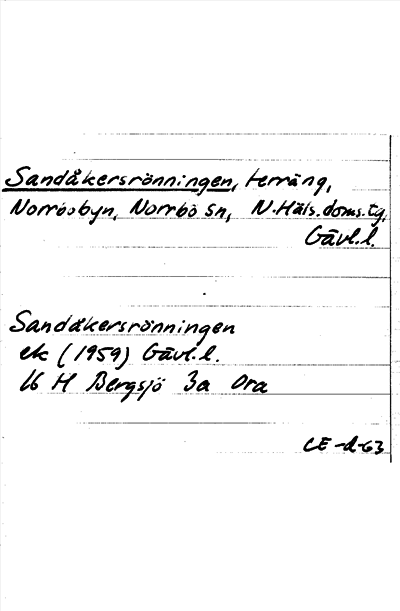 Sandåkersrönningen, terräng,
Norrbobyn, Norrbo sn, N.Häls.doms.tg,
Gävl.l.
Sandåkersrönningen
ek (1959) Gävl.l.
16 H Bergsjö 3a Ora
CE-d-63